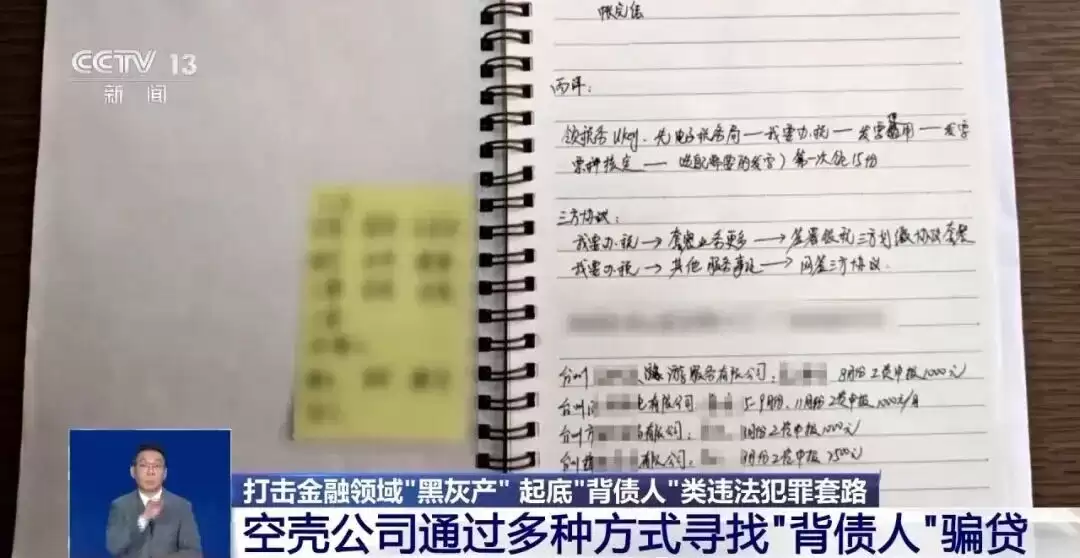 CCTV 13
新闻
两年:
领税务Ukey,先电子税务局—我要办税—发票使用—发票
票种核定—选配需要的发票)第一次领15份
三方协议:
我要办税→套餐业务更多→签署银税三方划缴协议套餐
我要办税→其他服务事项→网签三方协议.
台州 旅游服务有限公司: 8月份工资申报1000元/
台州 有限公司 5-9月份、11月份工资申报1000元/月
台州 有限公司: 月份工资申报1000元/
台州 有限公司: 月份工资申报2500元/
打击金融领域"黑灰产" 起底"背债人"类违法犯罪套路
空壳公司通过多种方式寻找"背债人"骗贷